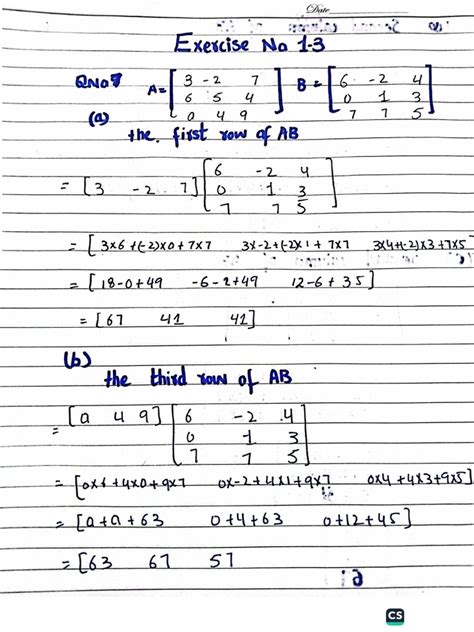 Date
Exercise No 1.3
QNo7 A= [ 3 -2 7 B = [ 6 -2 4
6 5 4 ] 0 1 3
(a) 0 4 9 7 7 5 ]
the first row of AB
= [3 -2 7] [ 6 -2 4
0 1 3
7 7 5
= [3x6+(-2)x0+7x7 3x-2+(-2)x1+7x7 3x4+(-2)x3+7x5
= [18-0+49 -6-2+49 12-6+35]
= [67 41 41]
(b)
the third row of AB
= [0 4 9] [ 6 -2 4
0 1 3
7 7 5 ]
= [0x6+4x0+9x7 0x-2+4x1+9x7 0x4+4x3+9x5]
= [0+0+63 0+4+63 0+12+45]
= [63 67 57
CS